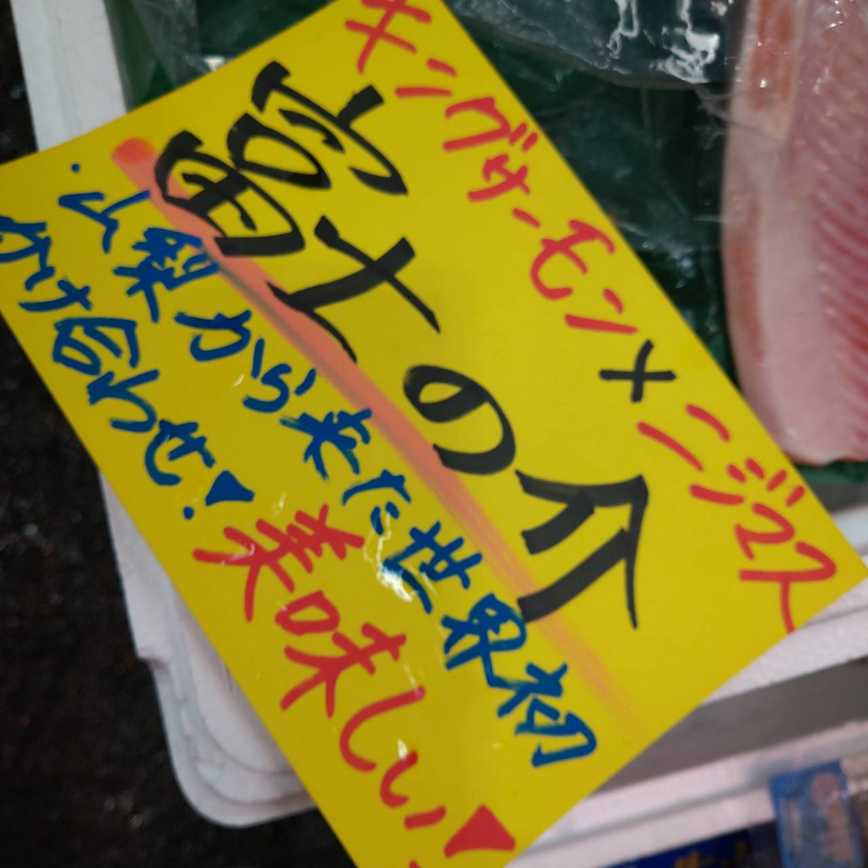 キングサーモン×ニジマス
富士の介
山梨から来た世界初
掛け合わせ!
美味しい!